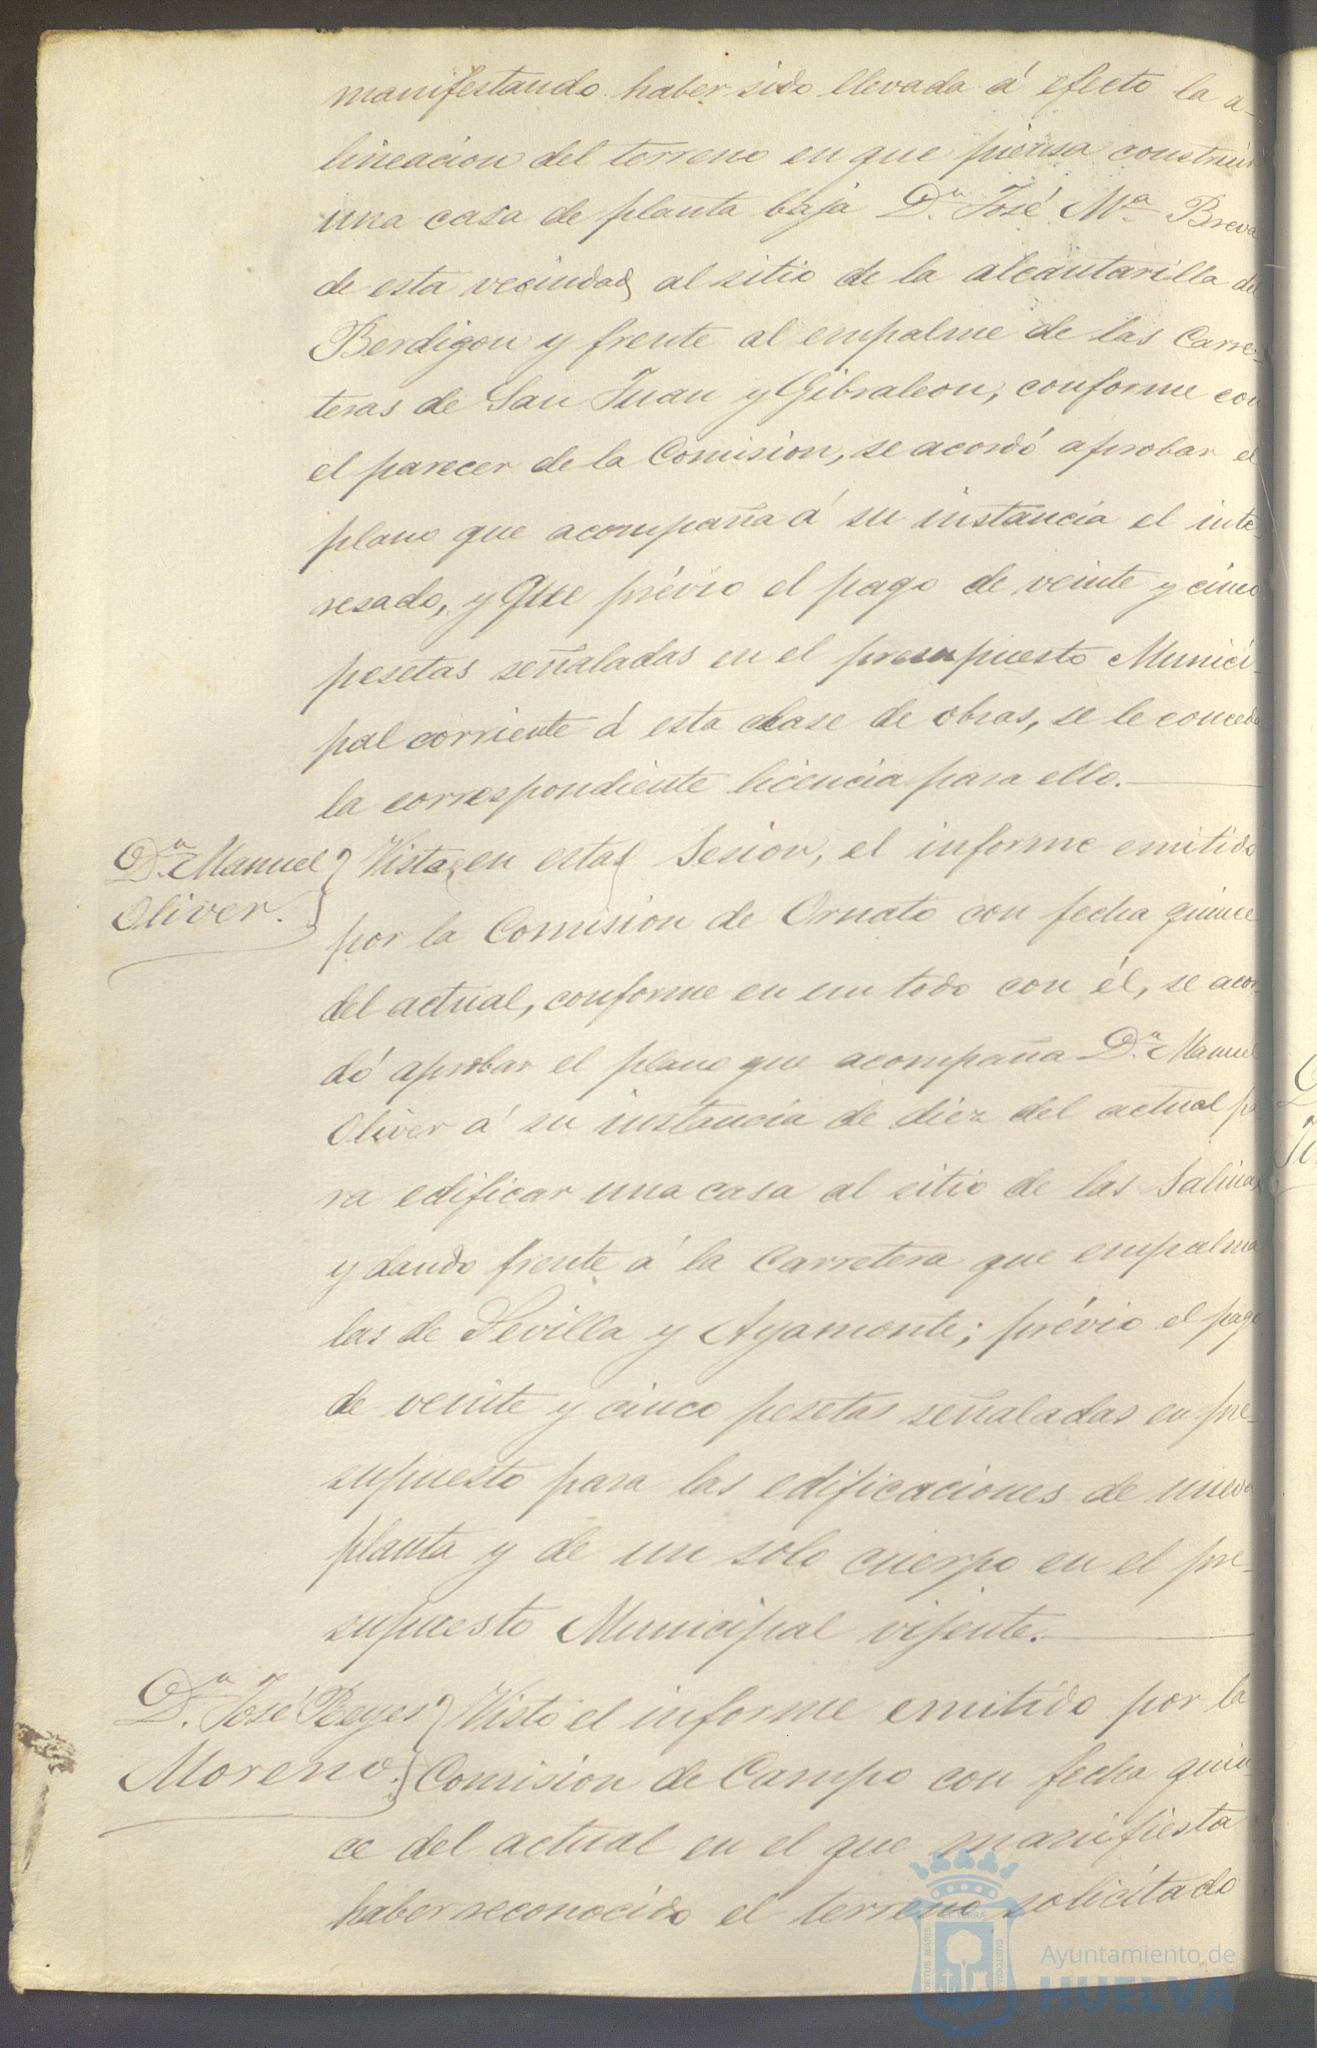 manifestando haber sido llevada á efecto la a-
lineacion del terreno en que piensa construir
una casa de planta baja D.n José M.a Breva
de esta vecindad al sitio de la alcantarilla del
Berdigon y frente al empalme de las Carre-
teras de San Juan y Gibraleon, conforme con
el parecer de la Comision, se acordó aprobar el
plano que acompaña á su instancia el inte-
resado, y que prévio el pago de veinte y cinco
pesetas señaladas en el presupuesto Munici-
pal corriente á esta clase de obras, se le conceda
la correspondiente licencia para ello.
D.n Manuel
Oliver.
Vista en esta Sesion, el informe emitido
por la Comision de Ornato con fecha quince
del actual, conforme en un todo con él, se acor-
dó aprobar el plano que acompaña D.n Manuel
Oliver á su instancia de diez del actual pa
ra edificar una casa al sitio de las Salinas
y dando frente á la Carretera que empalma
las de Sevilla y Ayamonte; prévio el pago
de veinte y cinco pesetas señaladas en pre-
supuesto para las edificaciones de nueva
planta y de un solo cuerpo en el pre-
supuesto Municipal vijente.
D.n José Reyes
Moreno.
Visto el informe emitido por la
Comision de Campo con fecha quin-
ce del actual en el que manifiesta
haber reconocido el terreno solicitado
PORTUS MARIS
ET TERRÆ
CUSTODIA
Ayuntamiento de
HUELVA